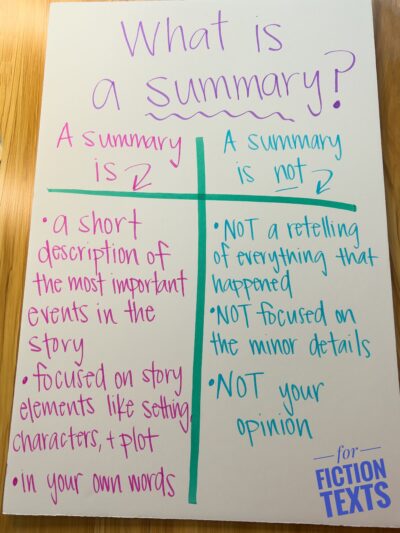 What is
a summary?
A summary
is
• a short
description of
the most important
events in the
story
• focused on story
elements like setting,
characters, + plot
• in your own words
A summary
is not
• NOT a retelling
of everything that
happened
• NOT focused on
the minor details
• NOT your
opinion
for
FICTION
TEXTS